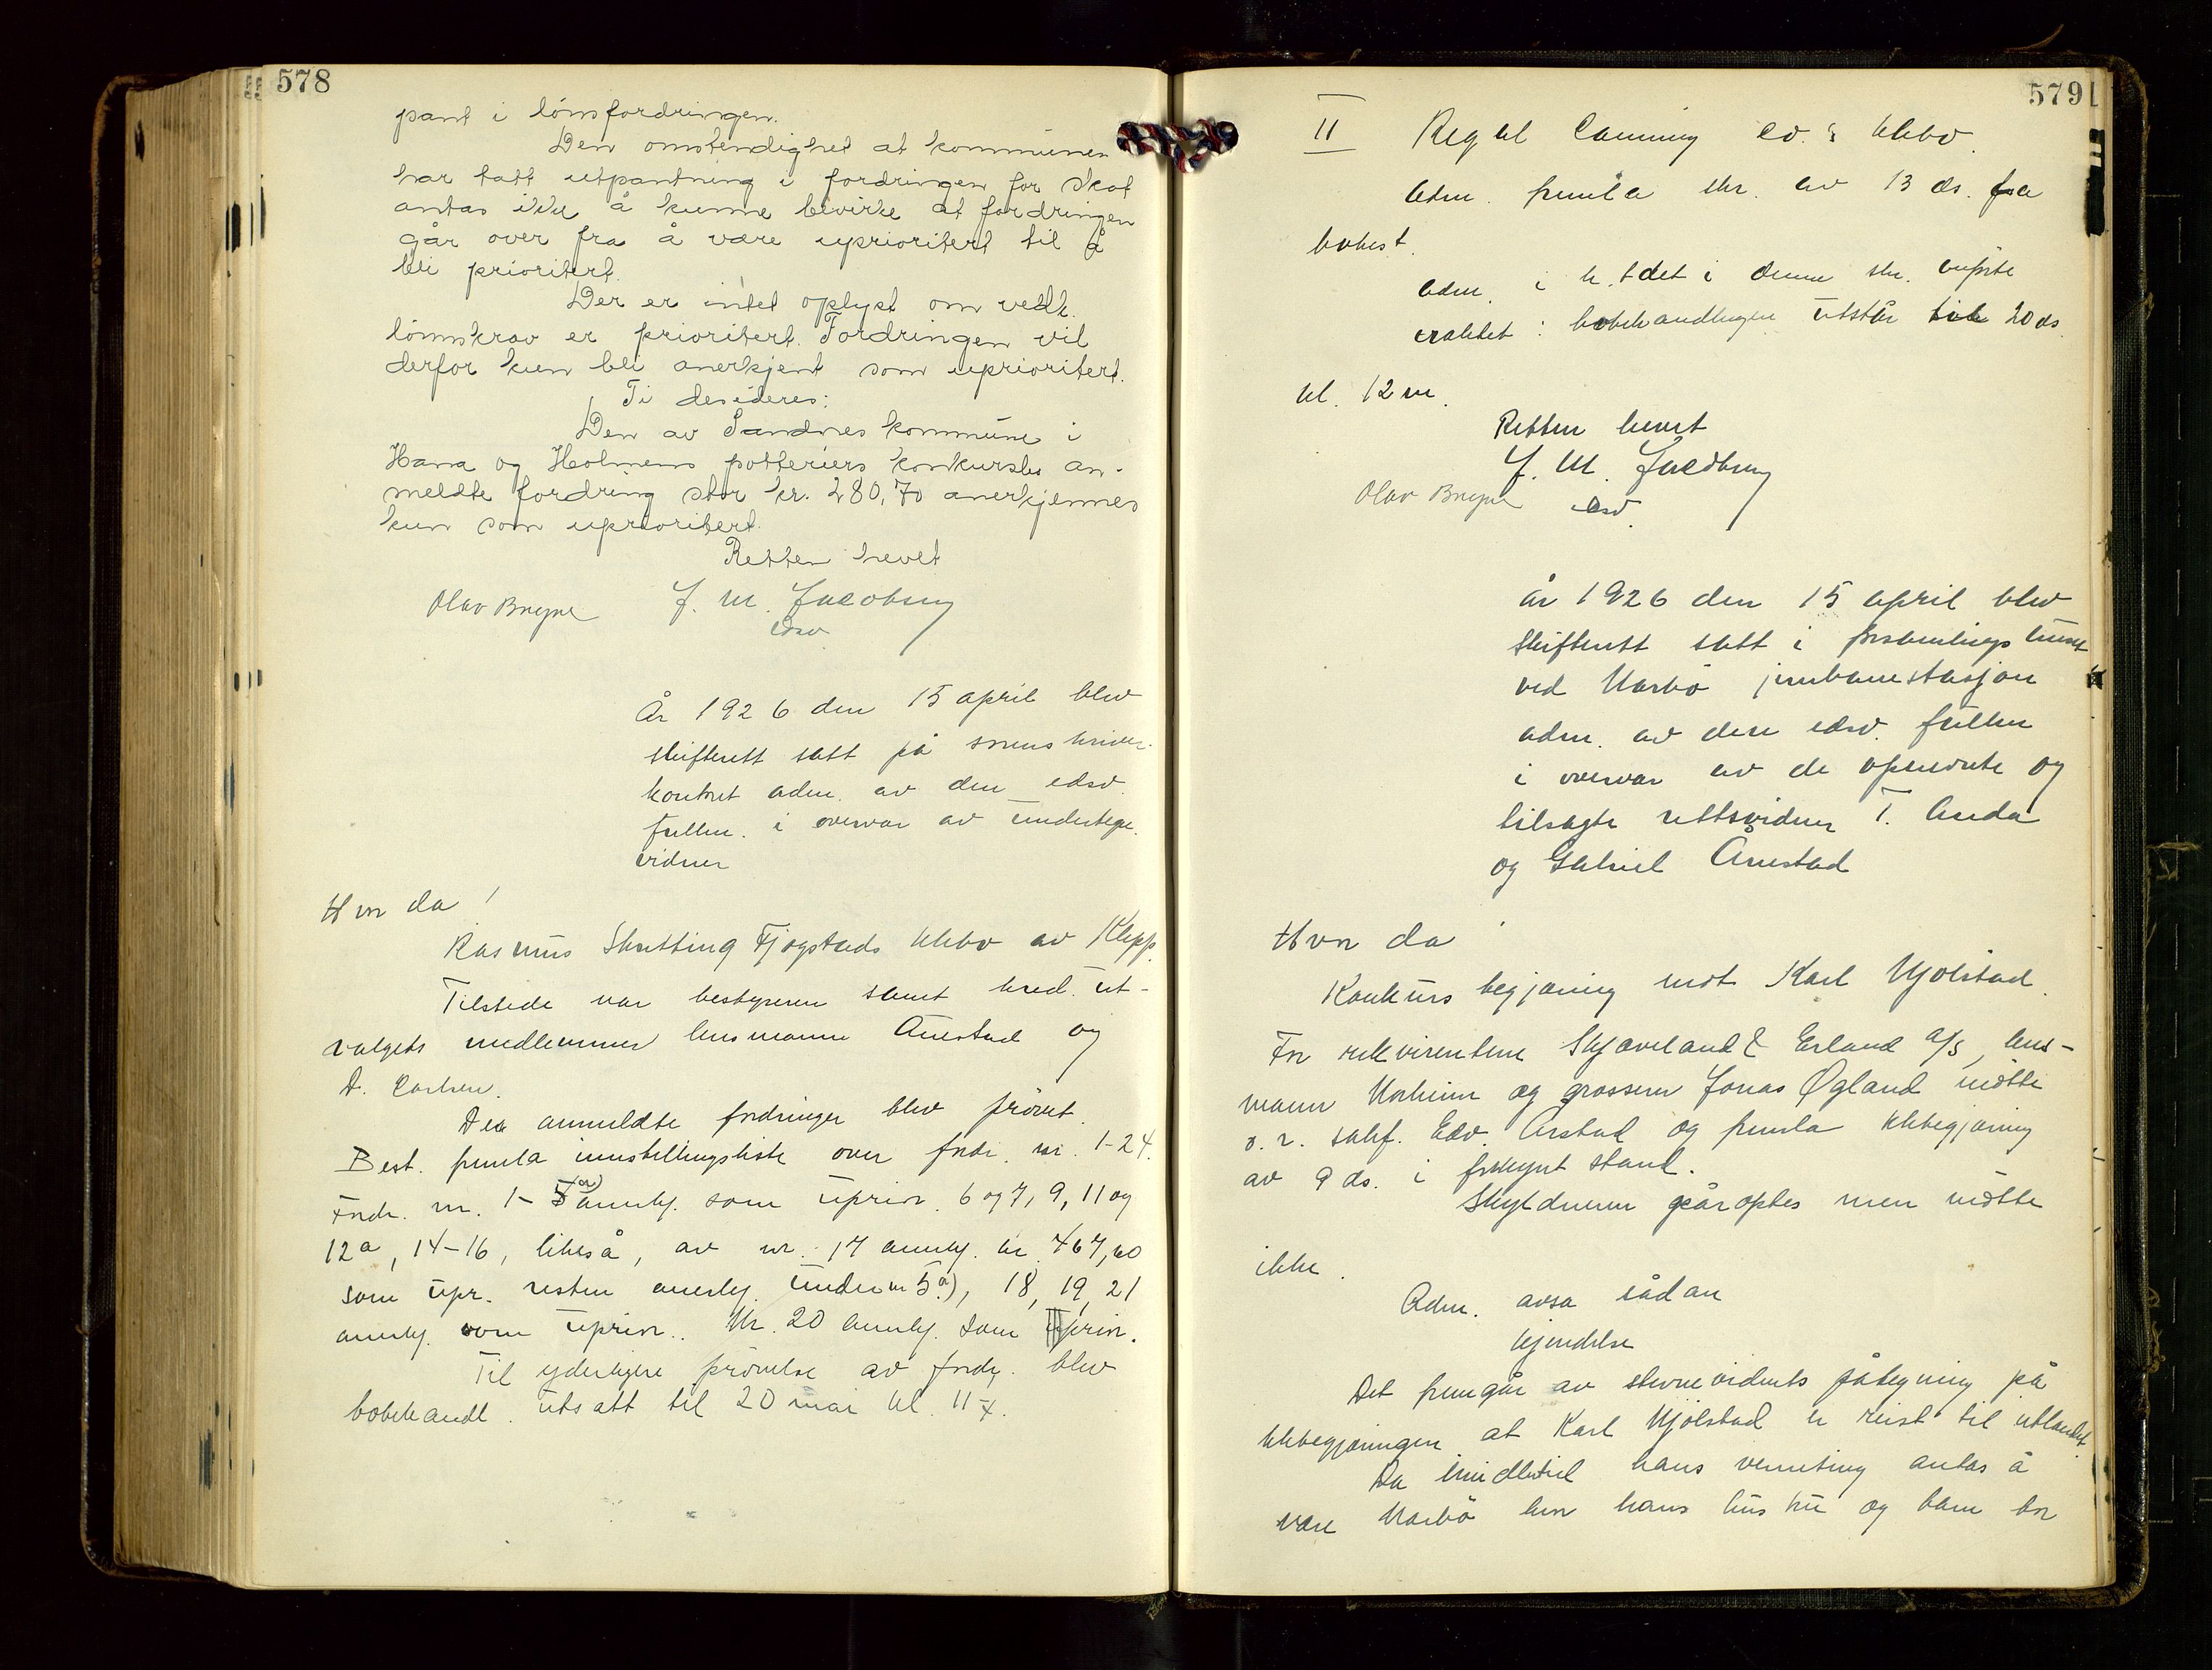 578
pant i lönsfordringen.
Den omstendighet at kommunen
har tatt utpantning i fordringen for skat
antas ikke å kunne bevirke at fordringen
går over fra å være uprioritert til å
bli prioritert.
Der er intet oplyst om vedk.
lönnskrav er prioritert. Fordringen vil
derfor kun bli anerkjent som uprioritert.
Ti desideres:
Den av Sandnes kommune i
Hana og Holmens potteriers konkursbo an-
meldte fordring stor kr. 280,70 anerkjennes
kun som uprioritert.
Retten hevet
Olav Bryne J. M. Jacobsen
edsv
År 1926 den 15 april blev
skifterett satt på sorenskriver-
kontoret adm. av den edsv.
fullm. i overvær av undertegn.
vidner
Hvor da!
Rasmus Skretting Fjogstads kkbo av Klepp.
Tilstede var bestyreren samt kred. ut-
valgets medlemmer lensmann Auestad og
D. Carlsen.
De anmeldte fordringer blev prövet.
Best. fremla innstillingsliste over fordr. nr. 1-24.
Fordr. nr. 1-5 a) anerkj. som uprior. 6 og 7, 9, 11 og
12a, 14-16, likeså, av nr. 17 anerkj. kr. 467,60
som upr. resten anerkj. under nr 5a), 18, 19, 21
anerkj. som uprior.. Nr. 20 anerkj. som prior.
Til yderligere prövelse av fordr. blev
bobehandl. utsatt til 20 mai kl. 11 f.
579
II
kkbo.
Adm. fremla skr. av 13 ds. fra
bobest.
Adm. i h. t det i denne skr. anförte
bobehandlingen utstår til 20 ds.
kl. 12 m.
Retten hevet
J. M. Jacobsen
Olav Bryne edsv.
År 1926 den 15 april blev
skifterett satt i forsamlingshuset
ved Narbö jernbanestasjon
adm. av den edsv. fullm
i overvær av de opnevnte og
tilsagte rettsvidner T. Anda
og Gabriel Auestad
Hvor da!
Konkurs begjæring mot Karl Mjölstad.
For rekvirentene Skjæveland & Erland A/S, lens-
mann Norheim og grosserer Jonas Øgland mötte
o. r. sakf. Edv. Årstad og fremla kkbegjæring
av 9 ds. i forkynt stand.
Skyldneren påroptes men mötte
ikke.
Adm. avsa sådan
kjendelse
Det fremgår av stevnevidnets påtegning på
kkbegjæringen at Karl Mjölstad er reist til utlandet.
Da imidlertid hans verneting antas å
være Narbö hvor hans hustru og barn bor